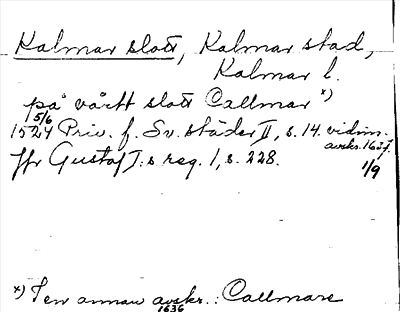 Kalmar slott, Kalmar stad,
Kalmar l.
på vårtt slott Callmar x)
5/6
1524 Priv. f. Sv. städer II, s. 14. vidim.
avskr. 1627.
Jfr Gustaf I:s reg. 1, s. 228.
1/9
x) I en annan avskr.: Callmare
1636